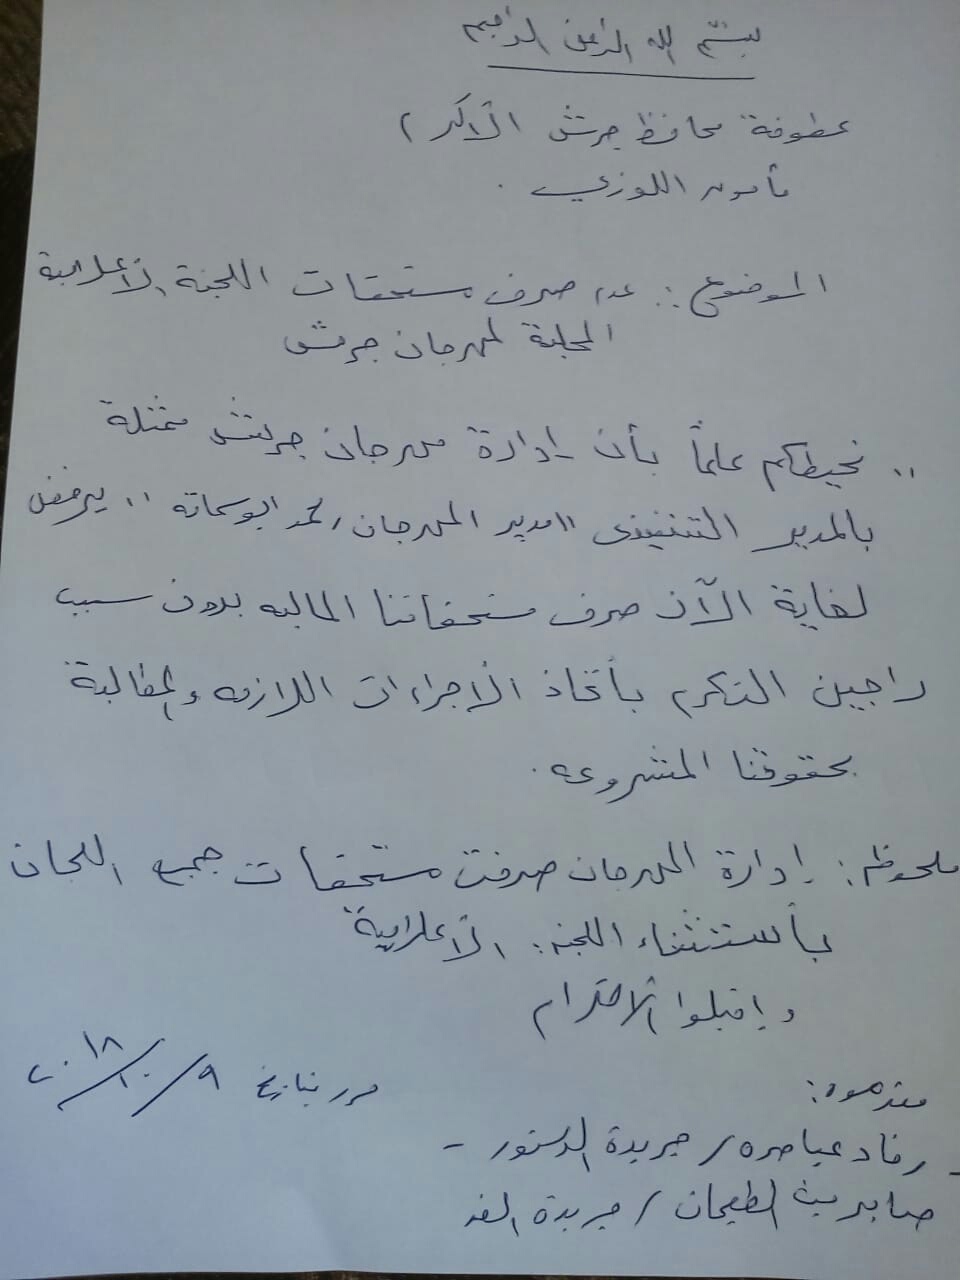 بسم الله الرحمن الرحيم
عطوفة محافظ جرش الأكرم
مأمون اللوزي .
الموضوع : عدم صرف مستحقات اللجنة الاعلامية
المحلية لمهرجان جرش
.. نحيطكم علماً بأن إدارة مهرجان جرش ممثلة
بالمدير التنفيذي "مدير المهرجان محمد ابوسماقه" يرفض
لغاية الآن صرف مستحقاتنا المالية بدون سبب
راجين التكرم بأتخاذ الأجراءات اللازمه والمطالبة
بحقوقنا المشروعه .
ملحوظه : إدارة المهرجان صرفت مستحقات جميع اللجان
بأستثناء اللجنه الأعلامية
وإقبلوا الاحترام
حرر بتاريخ ٩/١٠/٢٠١٨
مقدموه :
- رفاد عياصره / جريدة الدستور -
صابرين الطيعان / جريدة الغد